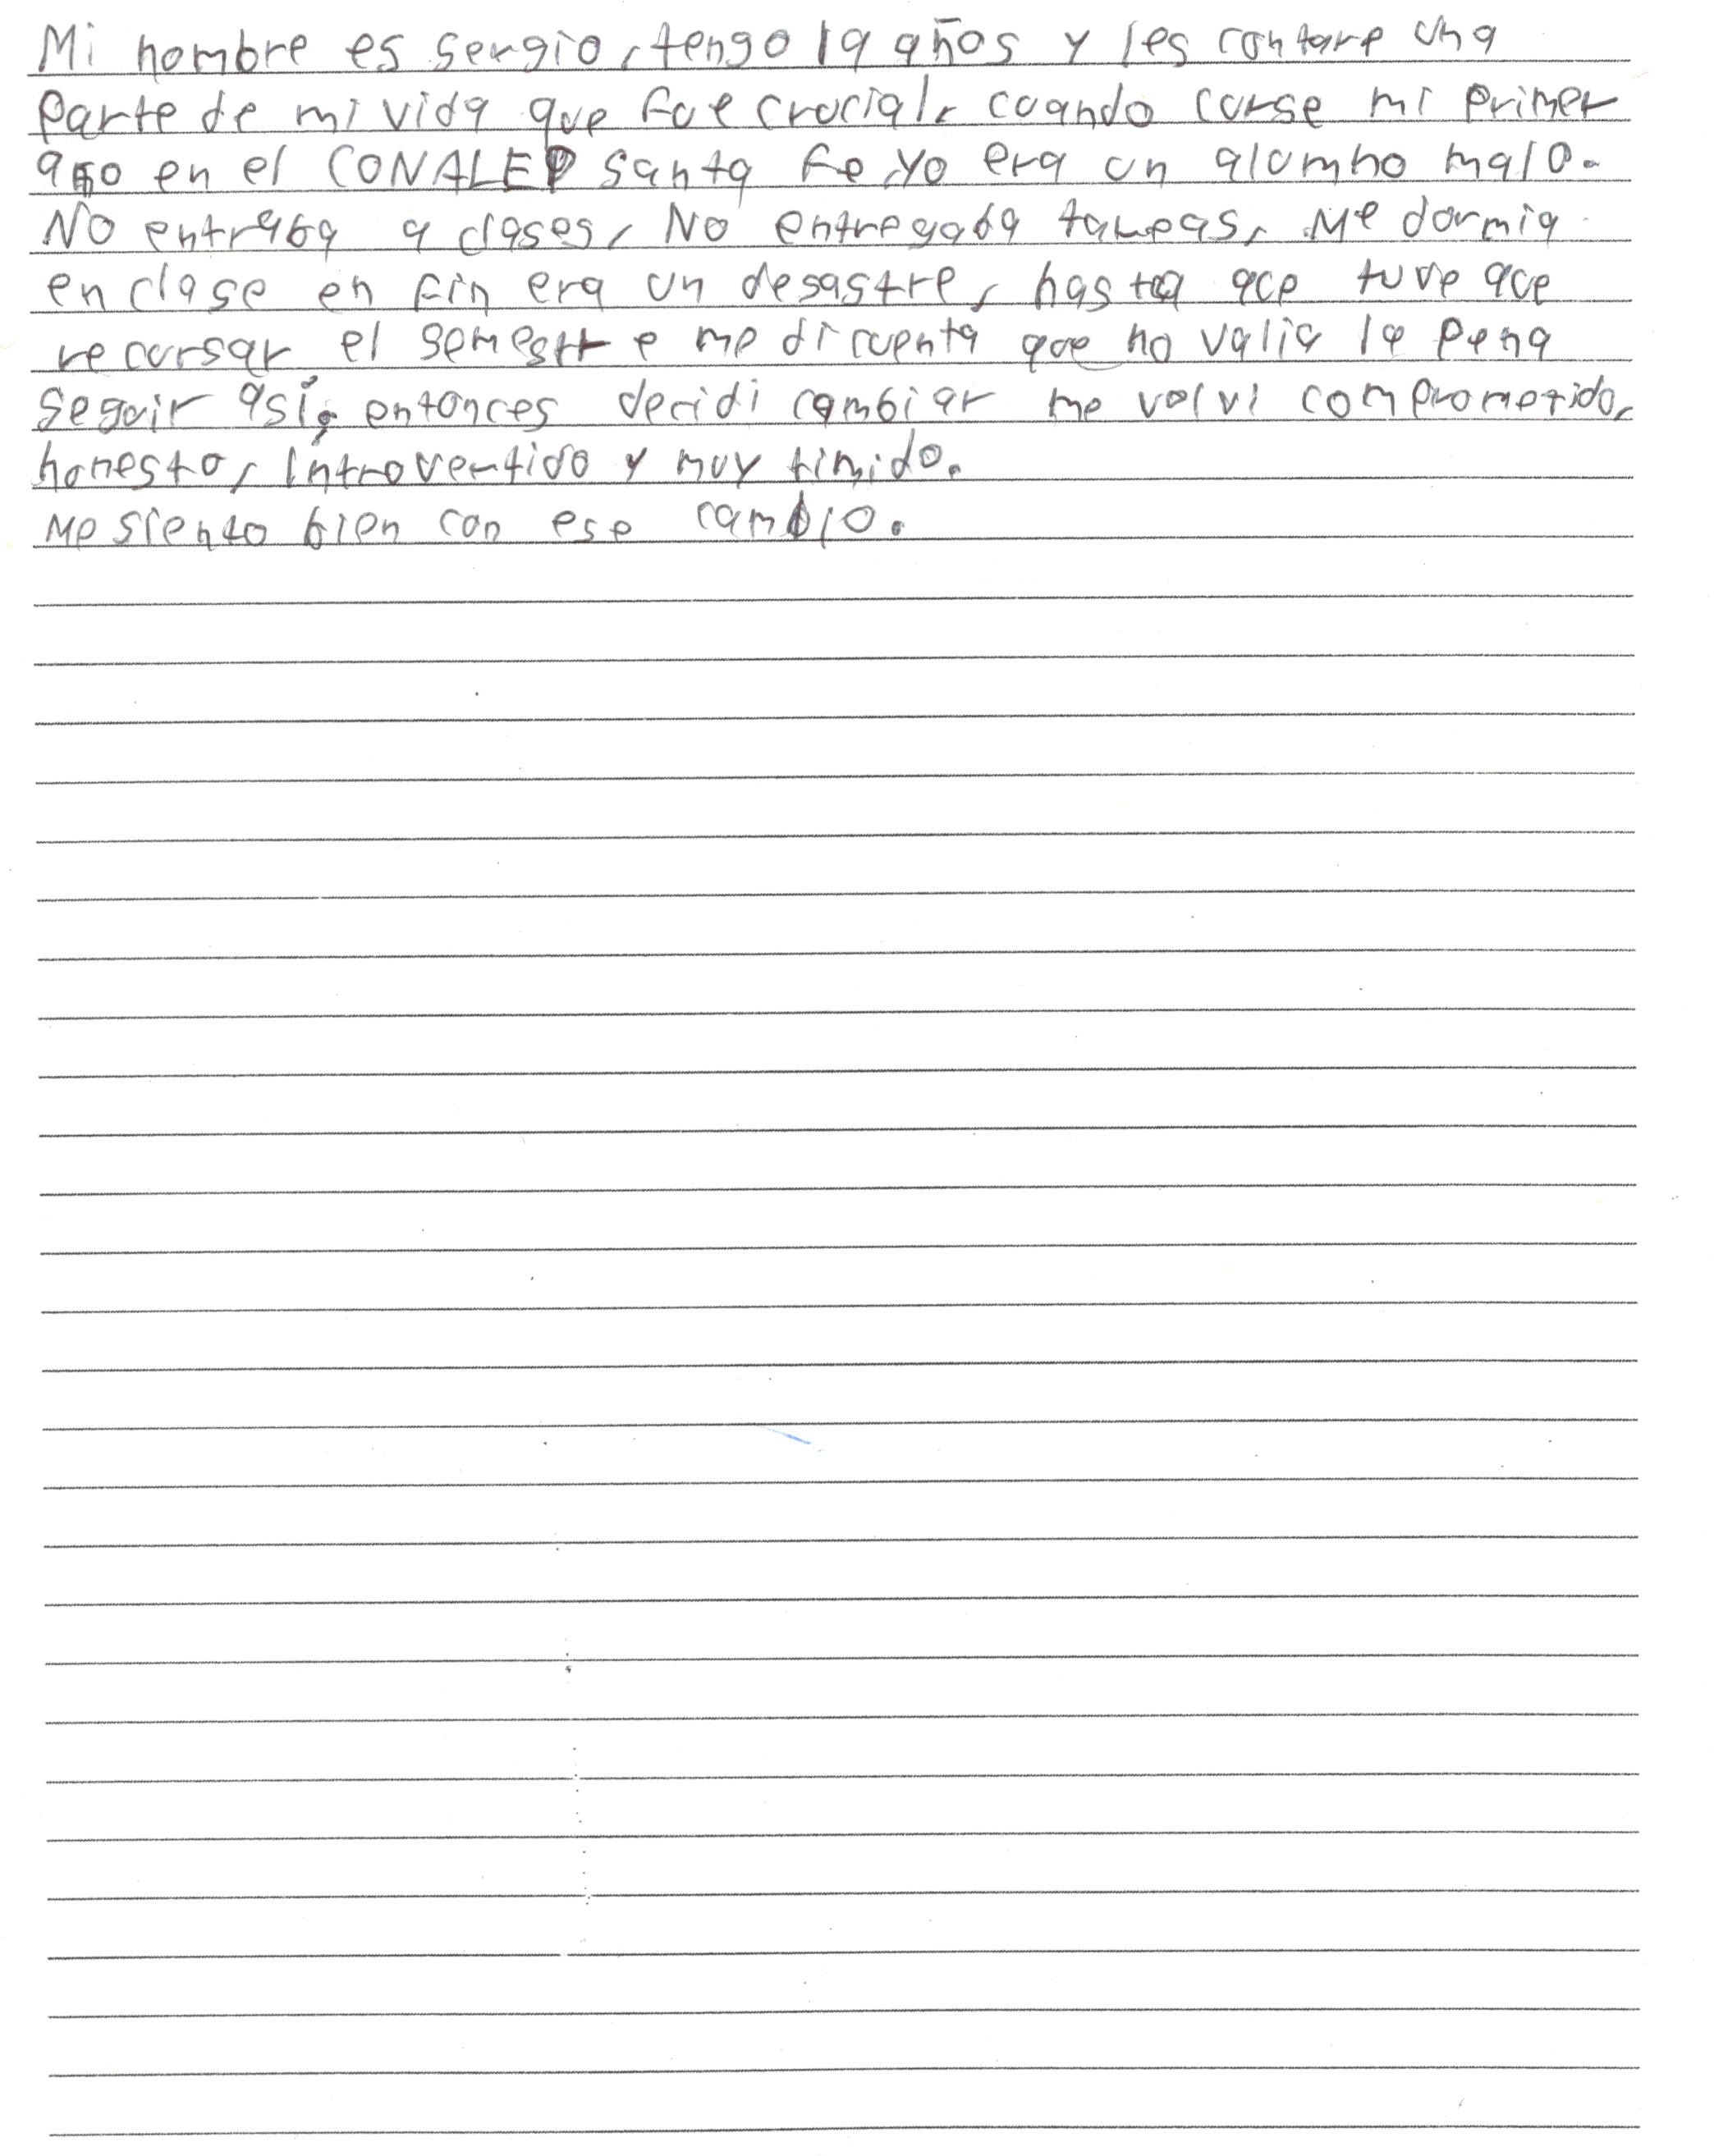 Mi nombre es sergio, tengo 19 años y les contare una
parte de mi vida que fue crucial, cuando curse mi primer
año en el CONALEP santa fe, yo era un alumno malo.
No entraba a clases, No entregaba tareas, Me dormia
en clase en fin era un desastre, hasta que tuve que
recursar el semestre me di cuenta que no valia la pena
seguir así, entonces decidi cambiar me volvi comprometido,
honesto, introvertido y muy timido.
Me siento bien con ese cambio.